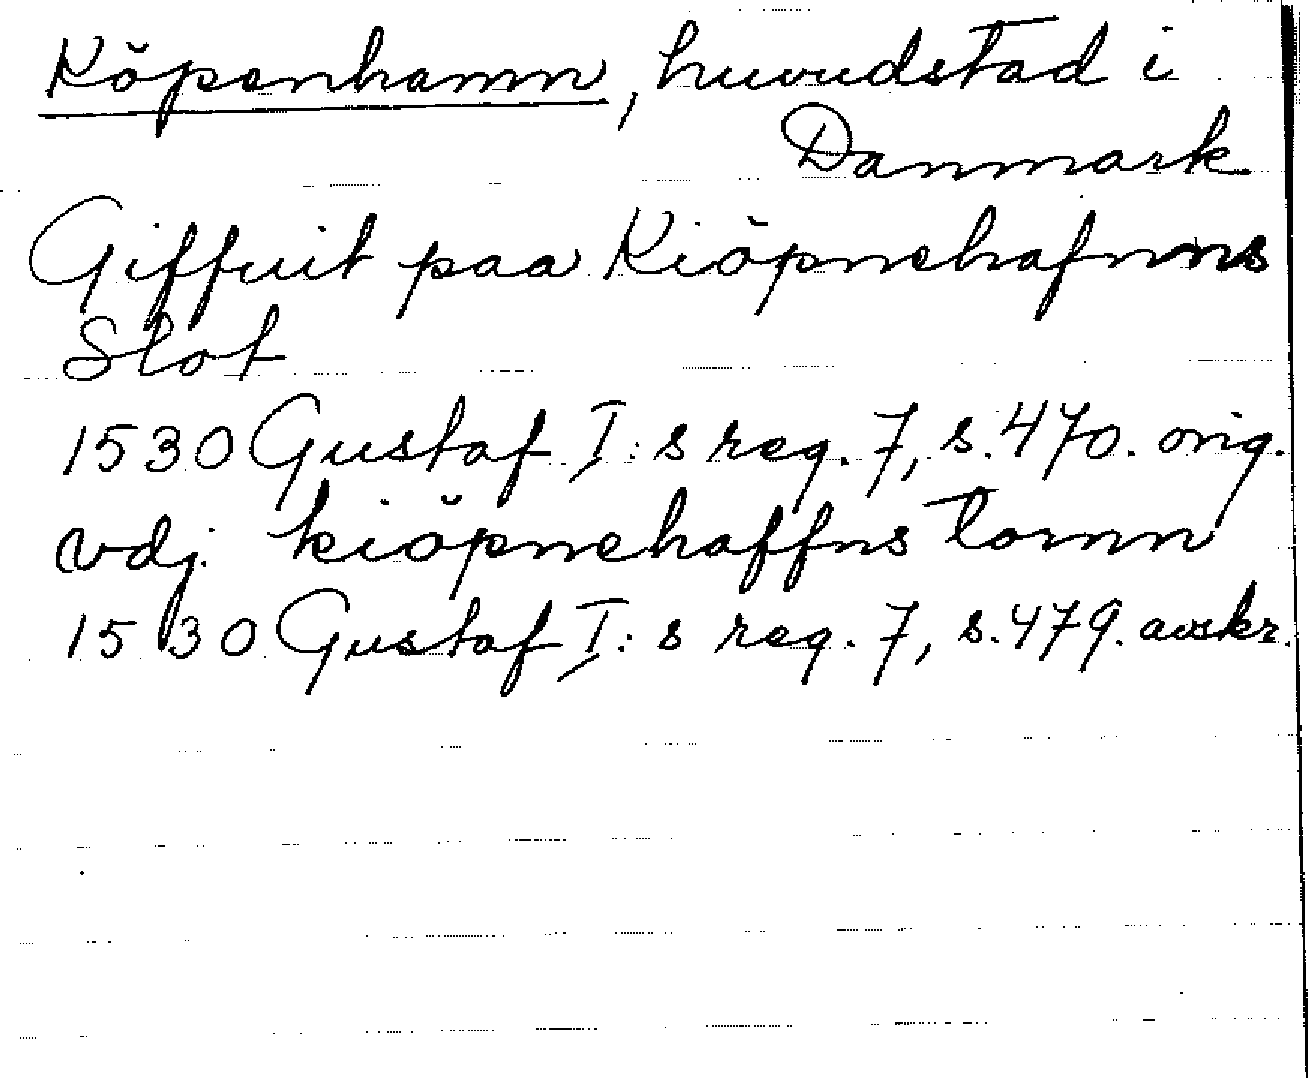 Köpenhamn, huvudstad i
Danmark
Giffuit paa Kiöpnehafnns
Slot
1530 Gustaf I:s reg. 7, s. 470. orig.
vdj kiöpnehaffns tornn
1530 Gustaf I:s reg. 7, s. 479. avskr.